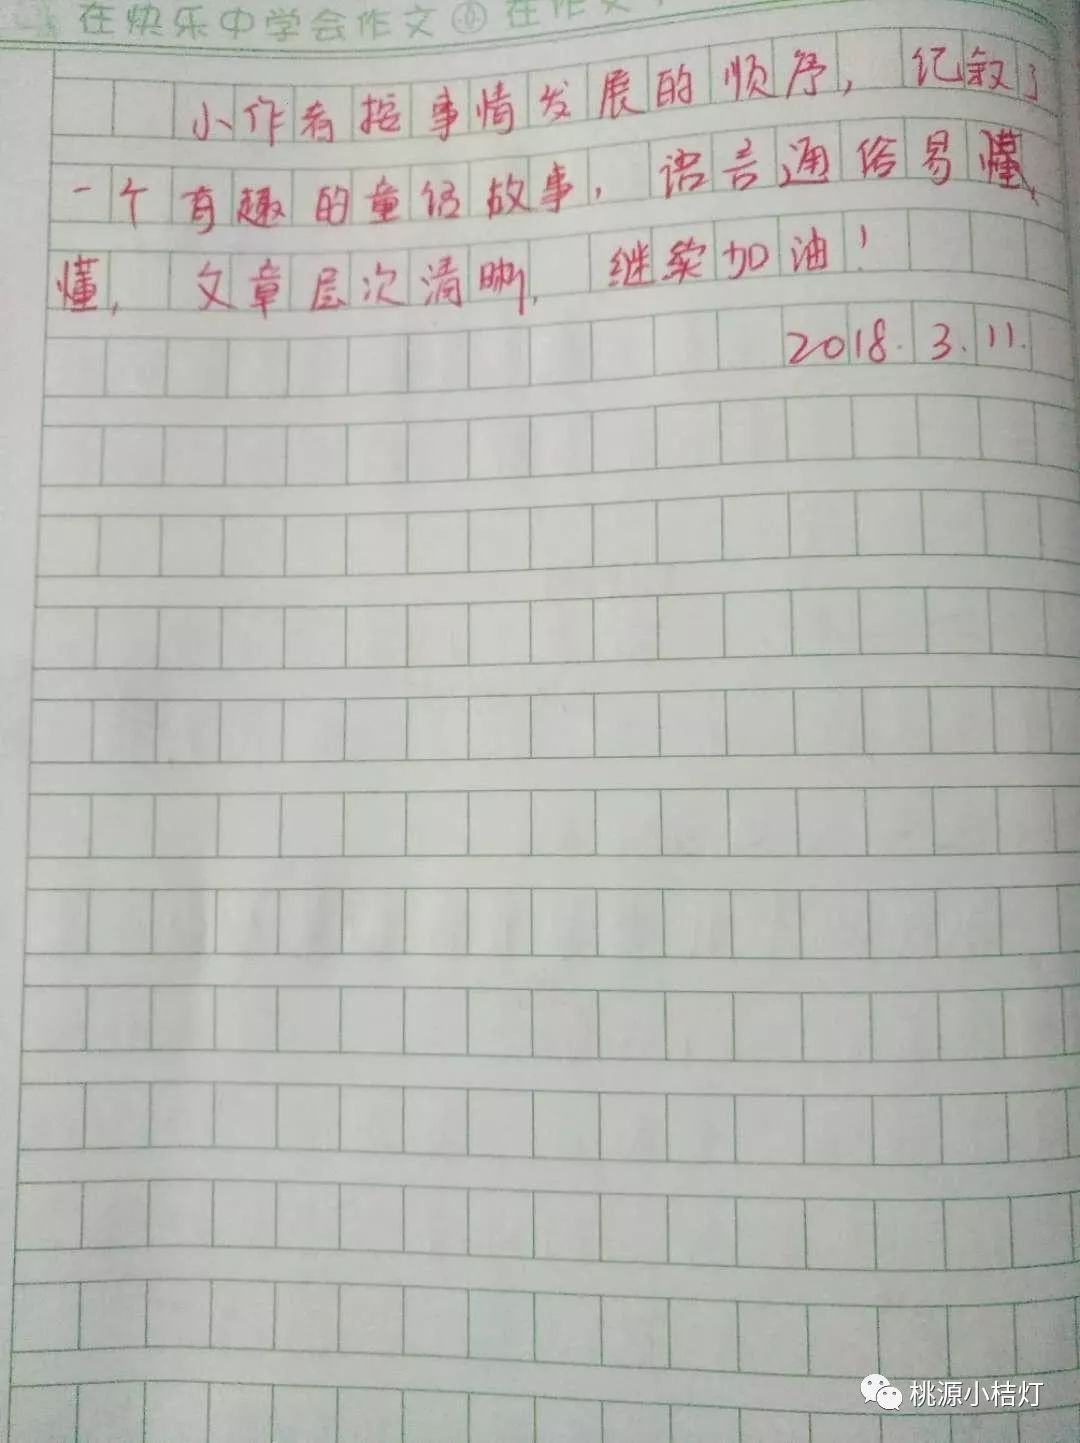 在快乐中学会作文 在作文
小作者按事情发展的顺序，纪叙了
一个有趣的童话故事，语言通俗易懂
懂，文章层次清晰，继续加油！
2018.3.11.
桃源小桔灯